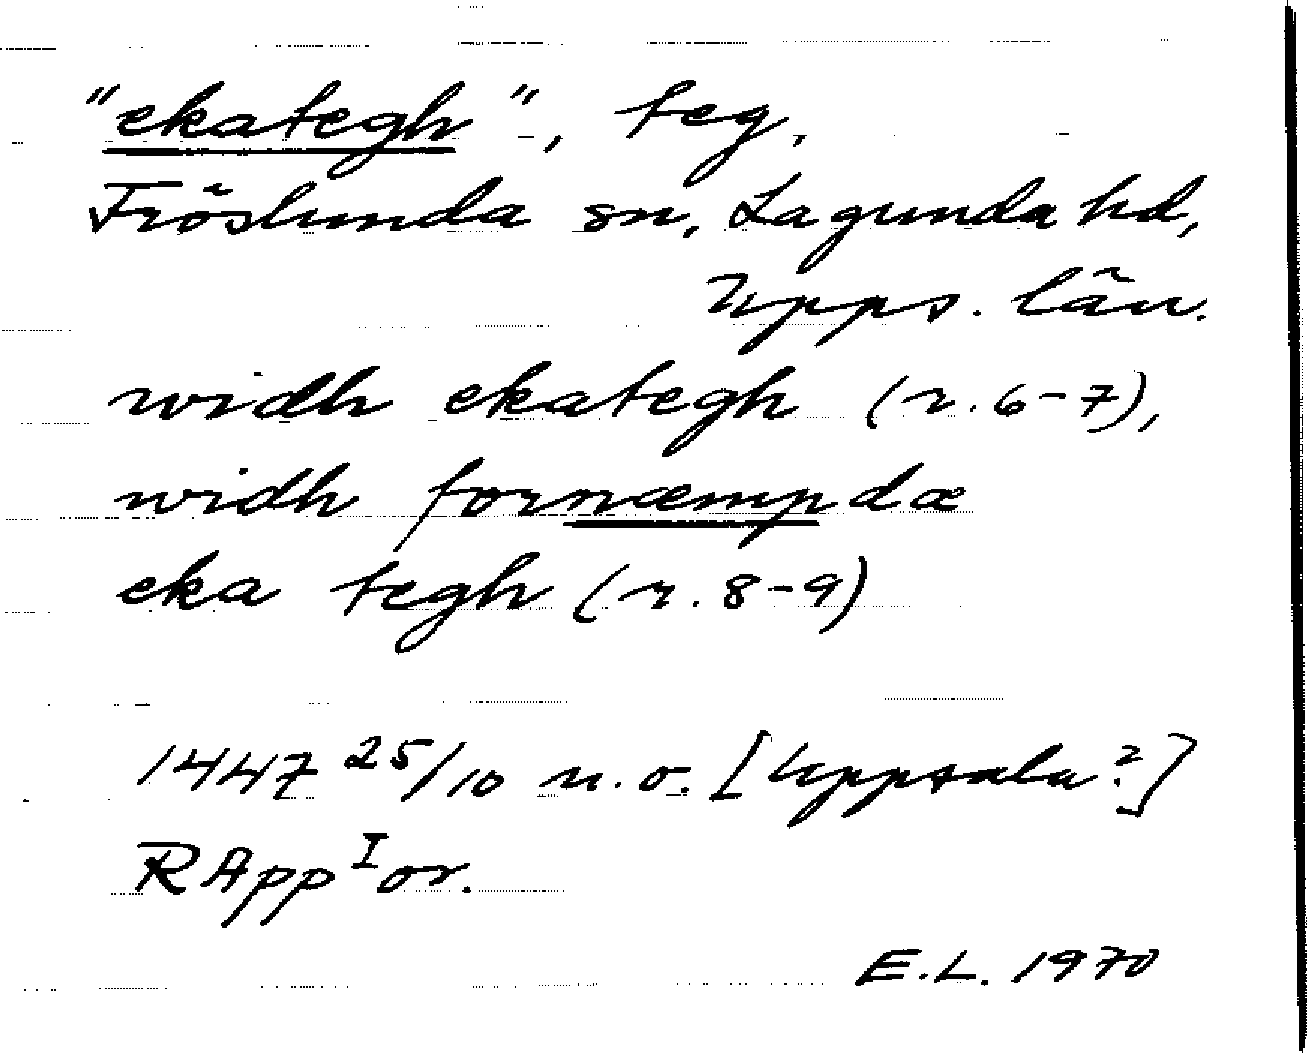 "ekategh", teg,
Fröslunda sn, Lagunda hd,
Upps. län.
widh ekategh (r. 6-7),
widh fornæmpdæ
eka tegh (r. 8-9)
1447 25/10 u.o. [Uppsala?]
RApp I or.
E.L. 1970